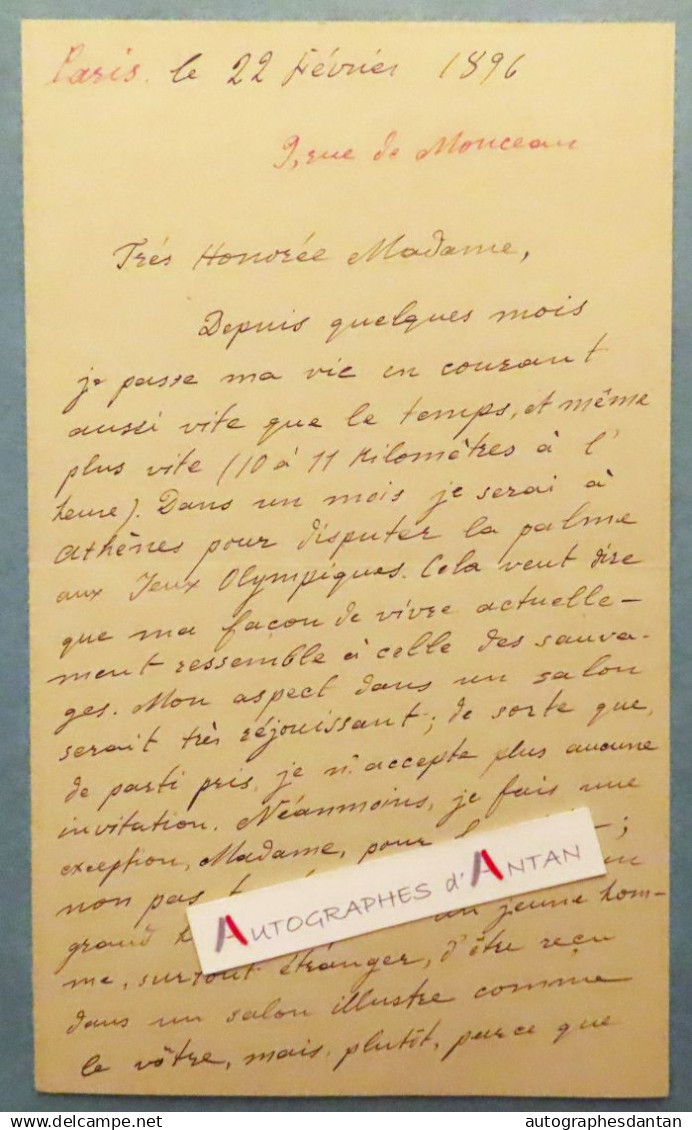 Paris. le 22 Février 1896
9, rue de Monceau
Trés Honorée Madame,
Depuis quelques mois
je passe ma vie en courant
aussi vite que le temps, et même
plus vite (10 à 11 Kilomètres à l'
heure). Dans un mois je serai à
Athènes pour disputer la palme
aux Jeux Olympiques. Cela veut dire
que ma façon de vivre actuelle-
ment ressemble à celle des sauva-
ges. Mon aspect dans un salon
serait très réjouissant; de sorte que,
de parti pris, je n'accepte plus aucune
invitation. Néanmoins, je fais une
exception, Madame, pour
non pas
grand
un jeune hom-
me, surtout étranger, d'être reçu
dans un salon illustre comme
le vôtre, mais, plutôt, parce que
AUTOGRAPHES d'ANTAN
www.delcampe.net
autographesdantan